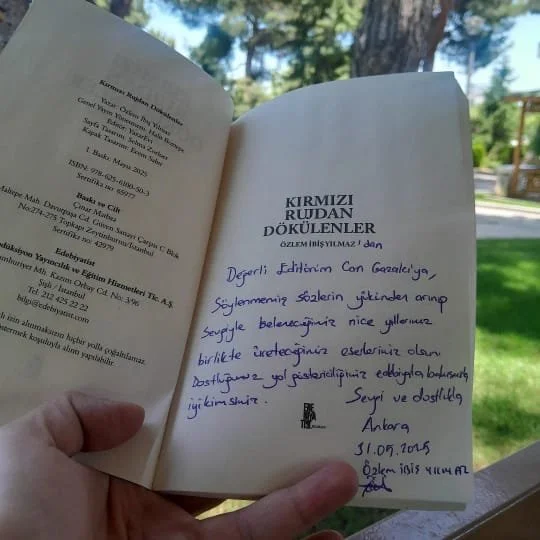 Kırmızı Rujdan Dökülenler
Yazar: Özlem İbiş Yılmaz
Genel Yayın Yönetmeni:
Editör: YazarEvi
Sayfa Tasarım: Selma
Kapak Tasarım: Ecem
1. Baskı: Mayıs 2025
ISBN: 978-625-6100-50-3
Sertifika no: 65977
Baskı ve Cilt
Çınar Matbaa
Maltepe Mah. Davutpaşa Cd. Güven Sanayi Çarşısı C Blok
No:274-275 Topkapı Zeytinburnu/İstanbul
Sertifika no: 42979
Edebiyatist
Prodüksiyon Yayıncılık ve Eğitim Hizmetleri Tic. A.Ş.
Cumhuriyet Mh. Kazım Orbay Cd. No: 3/96
Şişli / İstanbul
Tel: 212 425 22 22
bilgi@edebiyatist.com
izin alınmaksızın hiçbir yolla çoğaltılamaz.
göstermek koşuluyla alıntı yapılabilir.
KIRMIZI
RUJDAN
DÖKÜLENLER
ÖZLEM İBİŞ YILMAZ 'dan
Değerli Editörüm Can Gazalcı'ya,
Söylenmemiş sözlerin yükünden arınıp
Sevgiyle beleneceğimiz nice yıllarımız
birlikte üreteceğimiz eserlerimiz olsun
Dostluğunuz yol göstericiliğiniz edebiyata
iyikimsiniz.
Sevgi ve dostlukla
Ankara
31.05.2025
Özlem İBİŞ YILMAZ
EDE
BİYA
TİST